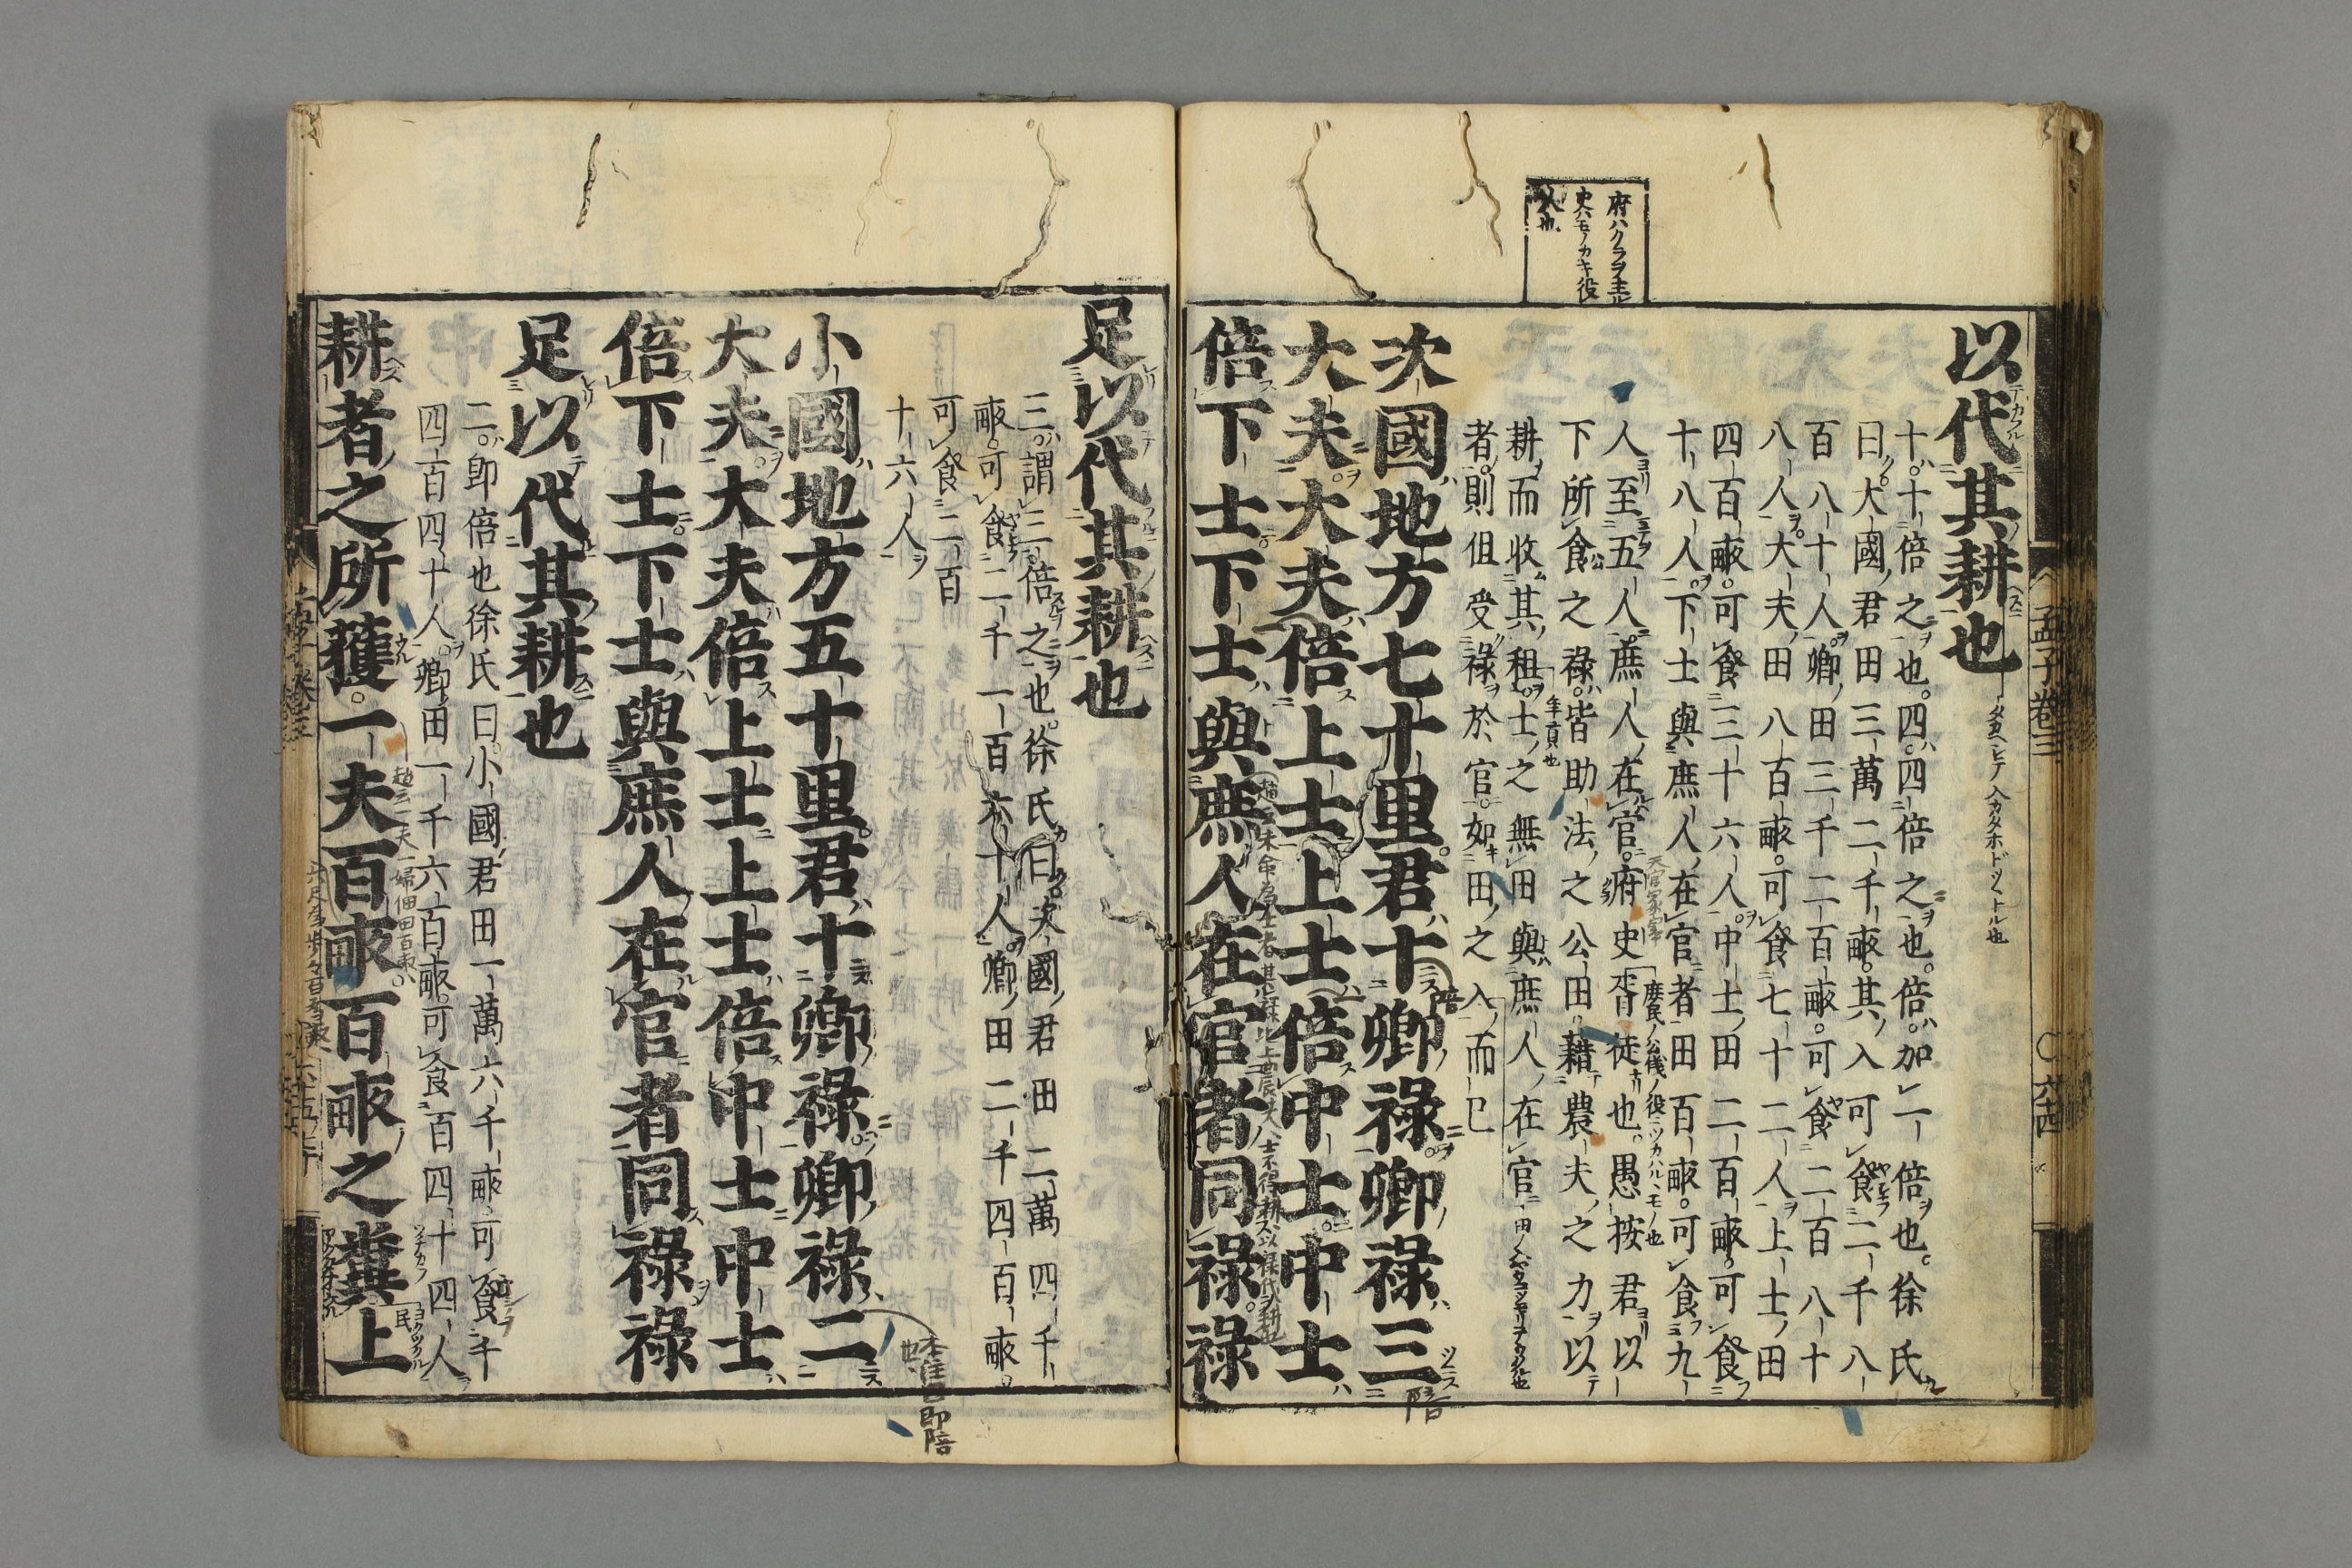 府ハクラヲ主ル
史ハモノカキ役
人也
以代其耕也
十十倍之也四四倍之也倍加一倍也徐氏
曰大國君田三萬二千畞其入可食二千八
百八十人卿田三千二百畞可食二百八十
八人大夫田八百畞可食七十二人上士田
四百畞可食三十六人中士田二百畞可食
十八人下士與庶人在官者田百畞可食九
人至五人庶人在官府史胥徒也愚按君以
下所食之祿皆助法之公田藉農夫之力以
耕而收其租士之無田與庶人在官
者則但受祿於官如田之入而已
次國地方七十里君十卿祿卿祿三
大夫大夫倍上士上士倍中士中士
倍下士下士與庶人在官者同祿祿
足以代其耕也
三謂三倍之也徐氏曰次國君田二萬四千
畞可食二千一百六十人卿田二千四百畞
可食二百
十六人
小國地方五十里君十卿祿卿祿二
大夫大夫倍上士上士倍中士中士
倍下士下士與庶人在官者同祿祿
足以代其耕也
二即倍也徐氏曰小國君田一萬六千畞可食千
四百四十人卿田一千六百畞可食百四十四人
耕者之所獲一夫百畞百畞之糞上
孟子卷三
六十四